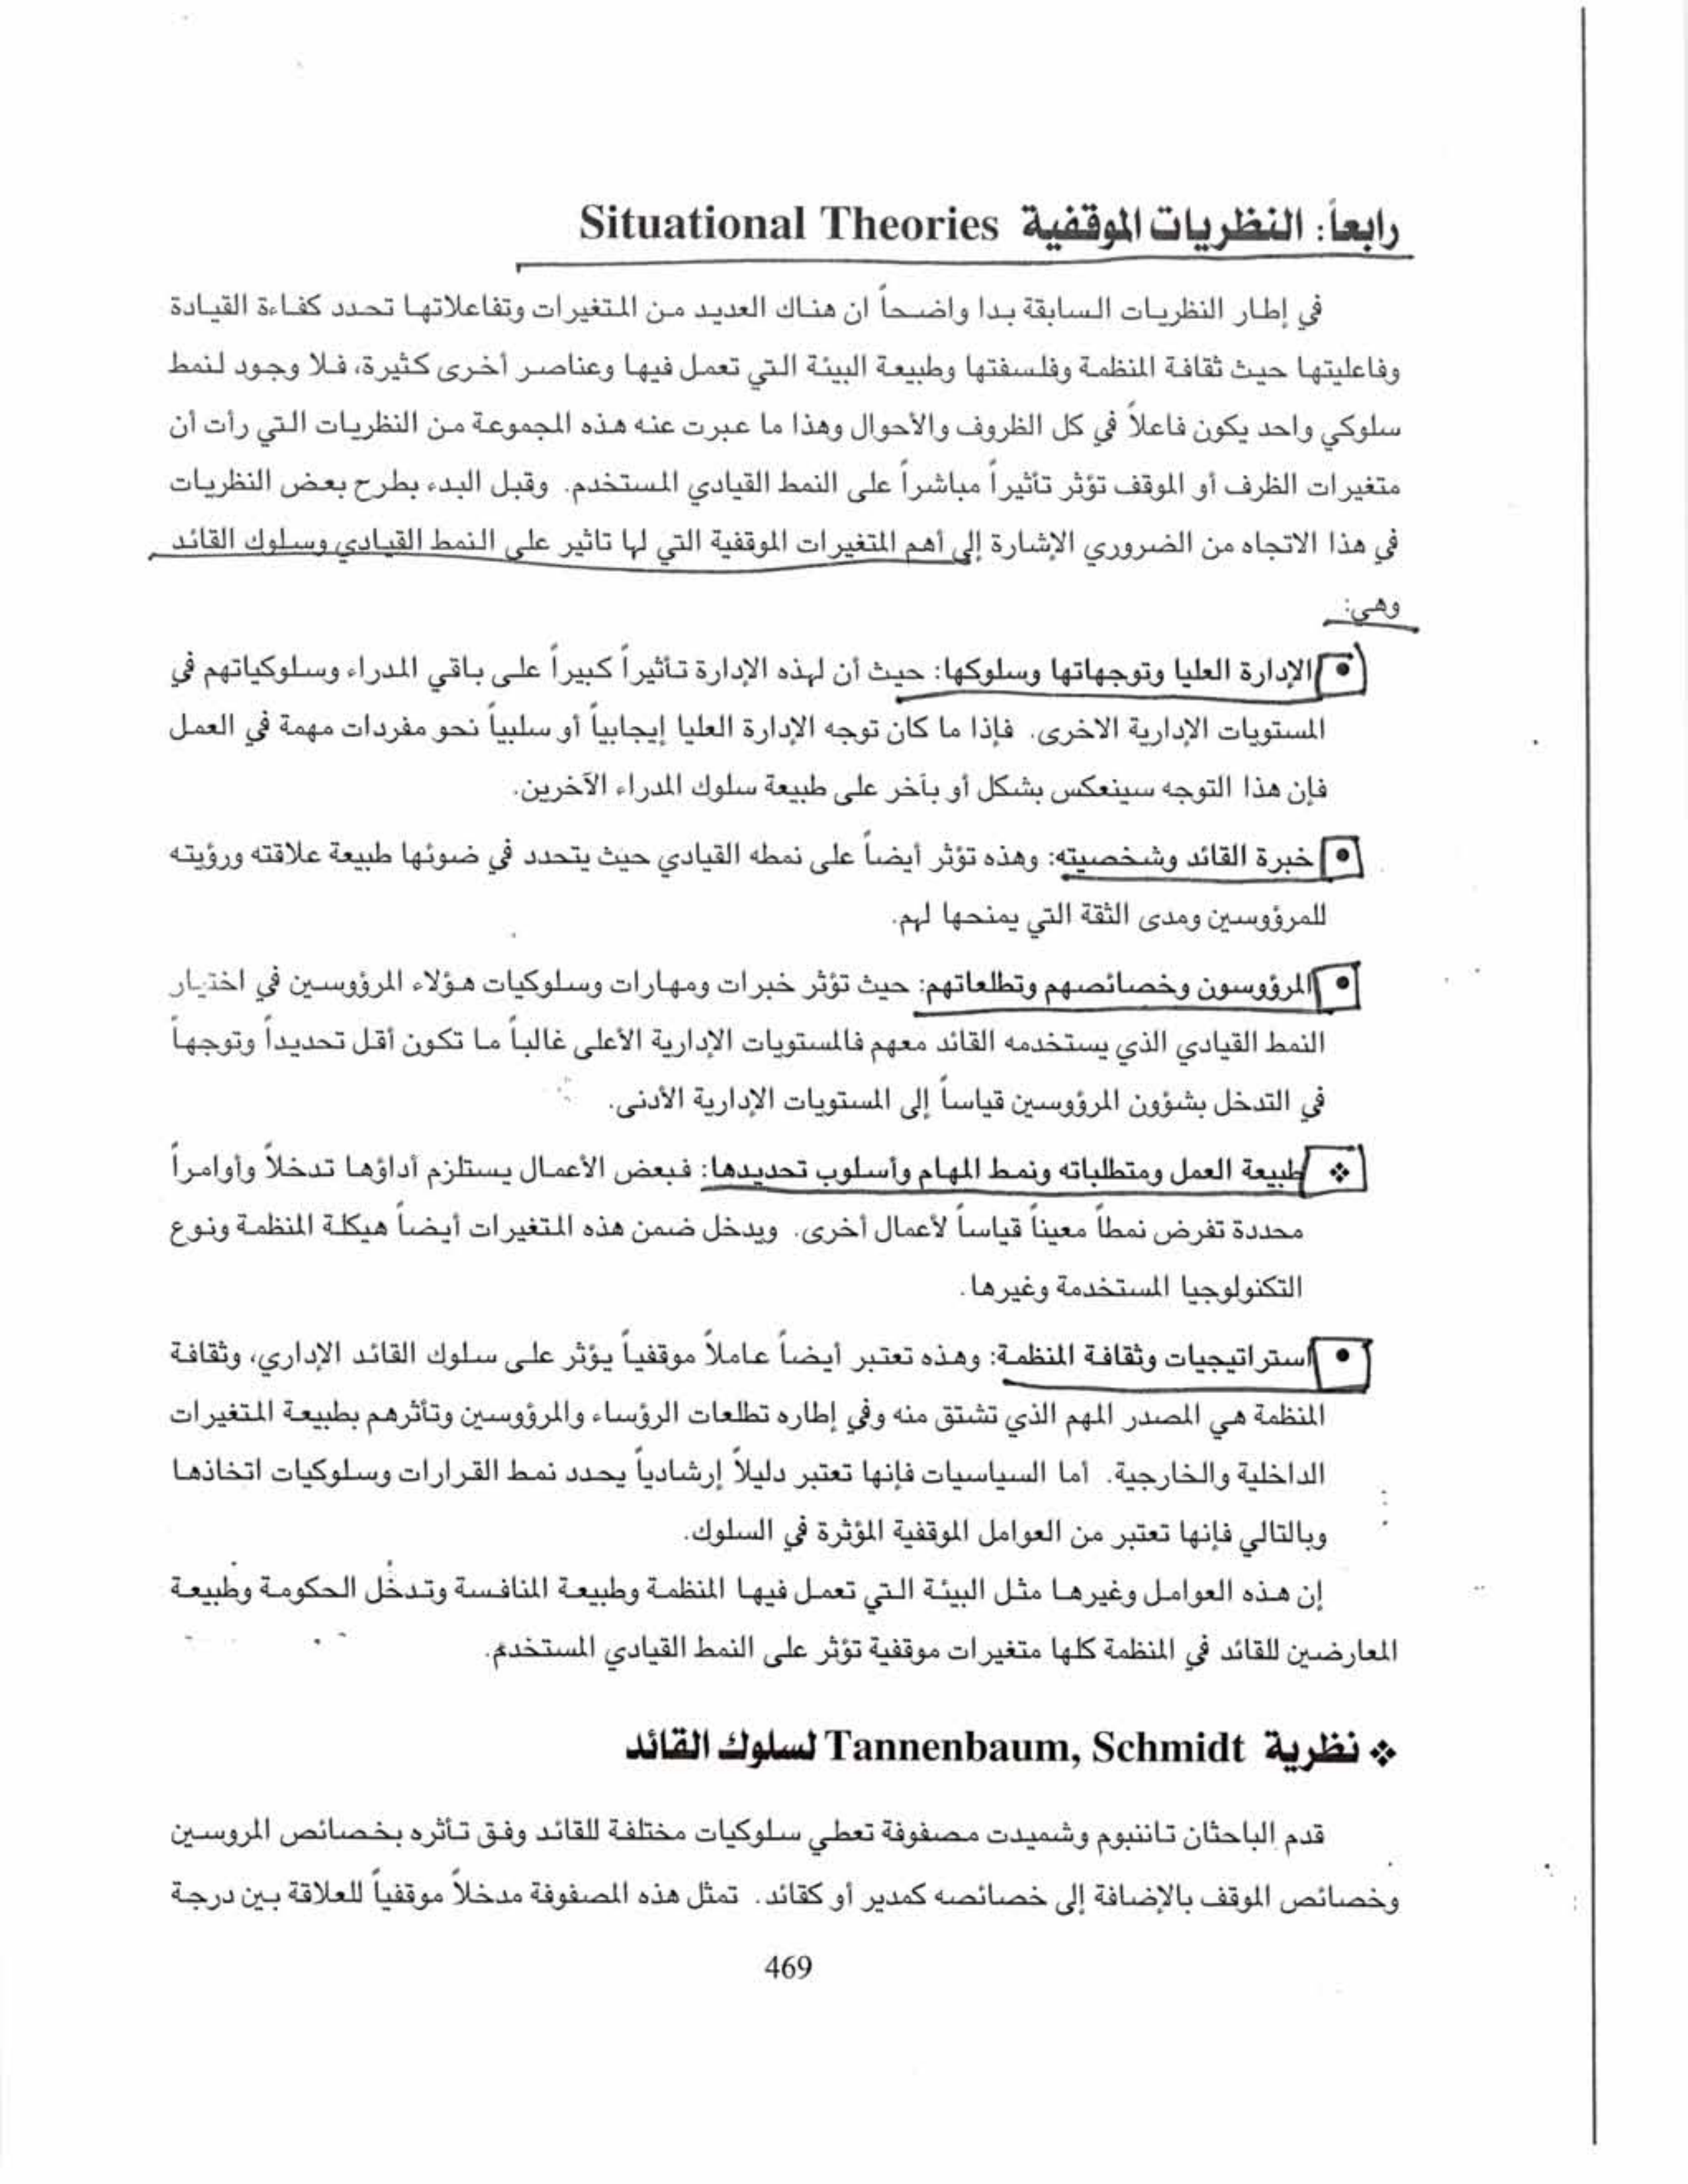 رابعاً: النظريات الموقفية Situational Theories
في إطار النظريات السابقة بدا واضحاً ان هناك العديد من المتغيرات وتفاعلاتها تحدد كفاءة القيادة
وفاعليتها حيث ثقافة المنظمة وفلسفتها وطبيعة البيئة التي تعمل فيها وعناصر أخرى كثيرة، فلا وجود لنمط
سلوكي واحد يكون فاعلاً في كل الظروف والأحوال وهذا ما عبرت عنه هذه المجموعة من النظريات التي رأت أن
متغيرات الظرف أو الموقف تؤثر تأثيراً مباشراً على النمط القيادي المستخدم. وقبل البدء بطرح بعض النظريات
في هذا الاتجاه من الضروري الإشارة إلى أهم المتغيرات الموقفية التي لها تاثير على النمط القيادي وسلوك القائد
وهي:
• الإدارة العليا وتوجهاتها وسلوكها: حيث أن لهذه الإدارة تأثيراً كبيراً على باقي المدراء وسلوكياتهم في
المستويات الإدارية الاخرى. فإذا ما كان توجه الإدارة العليا إيجابياً أو سلبياً نحو مفردات مهمة في العمل
فإن هذا التوجه سينعكس بشكل أو بآخر على طبيعة سلوك المدراء الآخرين.
• خبرة القائد وشخصيته: وهذه تؤثر أيضاً على نمطه القيادي حيث يتحدد في ضوئها طبيعة علاقته ورؤيته
للمرؤوسين ومدى الثقة التي يمنحها لهم.
• المرؤوسون وخصائصهم وتطلعاتهم: حيث تؤثر خبرات ومهارات وسلوكيات هؤلاء المرؤوسين في اختيار
النمط القيادي الذي يستخدمه القائد معهم فالمستويات الإدارية الأعلى غالباً ما تكون أقل تحديداً وتوجهاً
في التدخل بشؤون المرؤوسين قياساً إلى المستويات الإدارية الأدنى.
❖ طبيعة العمل ومتطلباته ونمط المهام وأسلوب تحديدها: فبعض الأعمال يستلزم أداؤها تدخلاً وأوامراً
محددة تفرض نمطاً معيناً قياساً لأعمال أخرى. ويدخل ضمن هذه المتغيرات أيضاً هيكلة المنظمة ونوع
التكنولوجيا المستخدمة وغيرها.
• استراتيجيات وثقافة المنظمة: وهذه تعتبر أيضاً عاملاً موقفياً يؤثر على سلوك القائد الإداري، وثقافة
المنظمة هي المصدر المهم الذي تشتق منه وفي إطاره تطلعات الرؤساء والمرؤوسين وتأثرهم بطبيعة المتغيرات
الداخلية والخارجية. أما السياسيات فإنها تعتبر دليلاً إرشادياً يحدد نمط القرارات وسلوكيات اتخاذها
وبالتالي فإنها تعتبر من العوامل الموقفية المؤثرة في السلوك.
إن هذه العوامل وغيرها مثل البيئة التي تعمل فيها المنظمة وطبيعة المنافسة وتدخُل الحكومة وطبيعة
المعارضين للقائد في المنظمة كلها متغيرات موقفية تؤثر على النمط القيادي المستخدم.
❖ نظرية Tannenbaum, Schmidt لسلوك القائد
قدم الباحثان تاننبوم وشميدت مصفوفة تعطي سلوكيات مختلفة للقائد وفق تأثره بخصائص المروسين
وخصائص الموقف بالإضافة إلى خصائصه كمدير أو كقائد. تمثل هذه المصفوفة مدخلاً موقفياً للعلاقة بين درجة
469